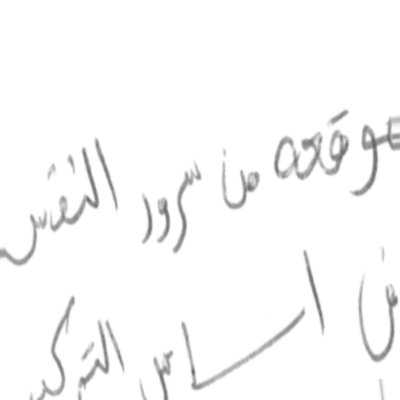 موقعه من سرور النفس
من اساس التركيب